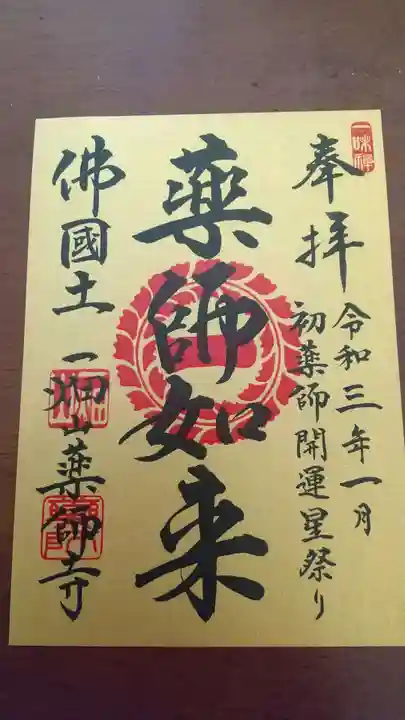 一味禅
奉拝
令和三年一月
初薬師開運星祭り
薬師如来
佛國土 一畑山薬師寺